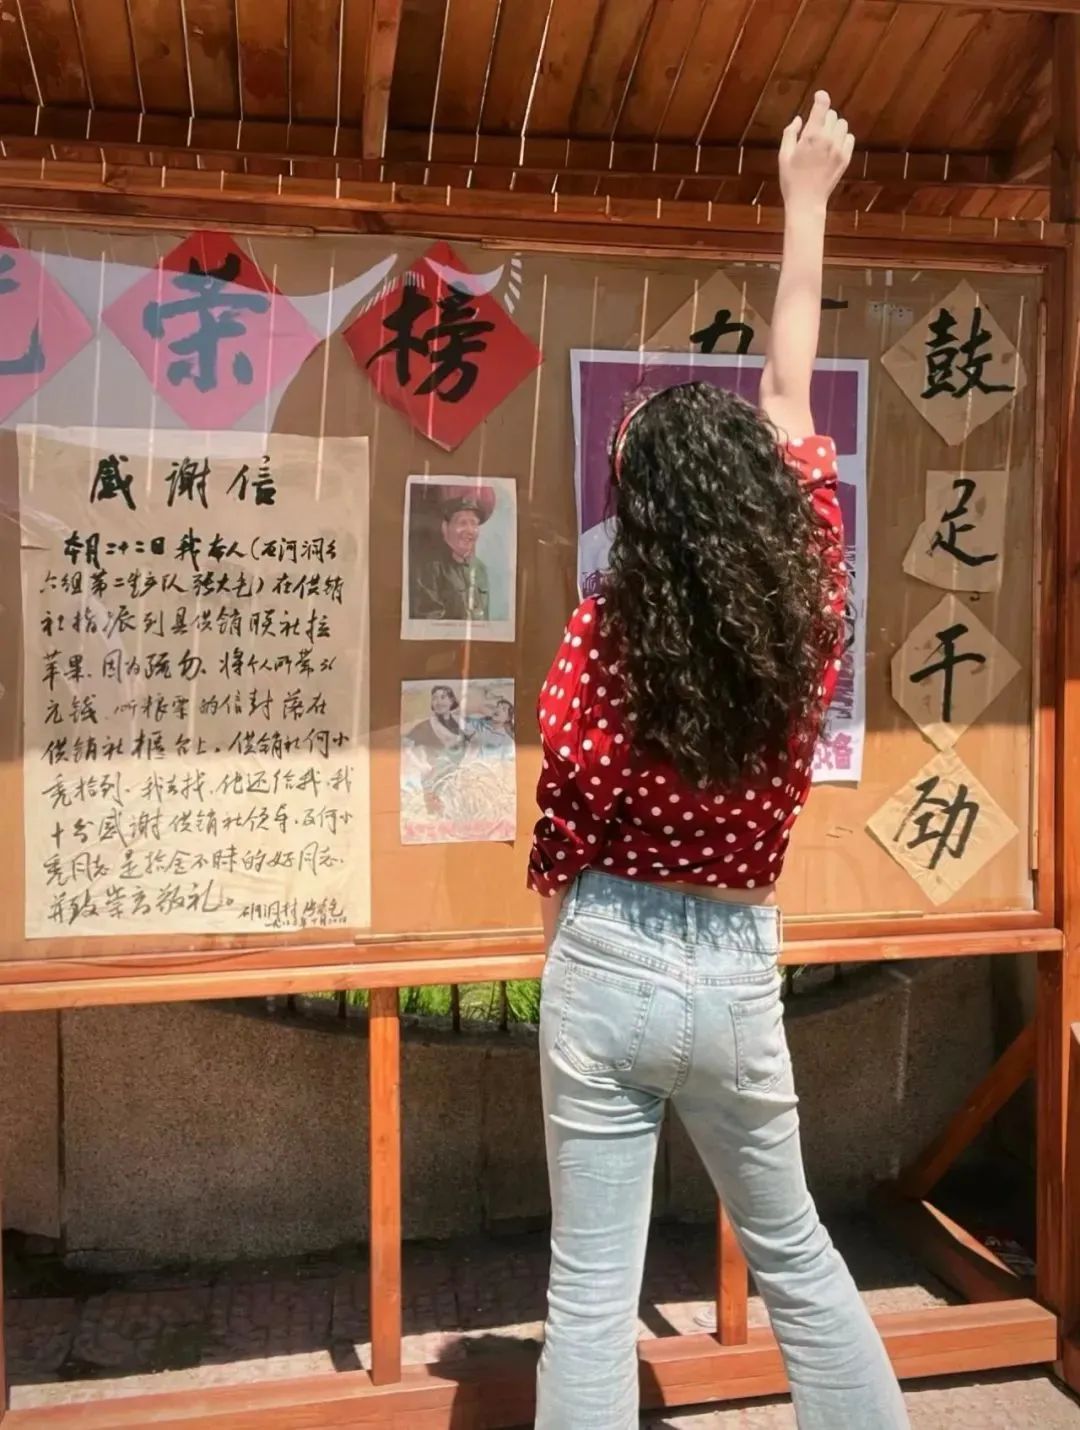 荣榜
鼓足干劲
力
感谢信
本月二十二日我本人(石河洞乡
六组第二生产队张大毛)在供销
社指派到县供销联社拉
苹果.因为疏勿.将个人所带36
元钱.所粮票的信封落在
供销社柜台上.供销社何小
亮拾到.我去找.他还给我.我
十分感谢供销社领导.及何小
亮同志是拾金不昧的好同志.
并致崇高敬礼。